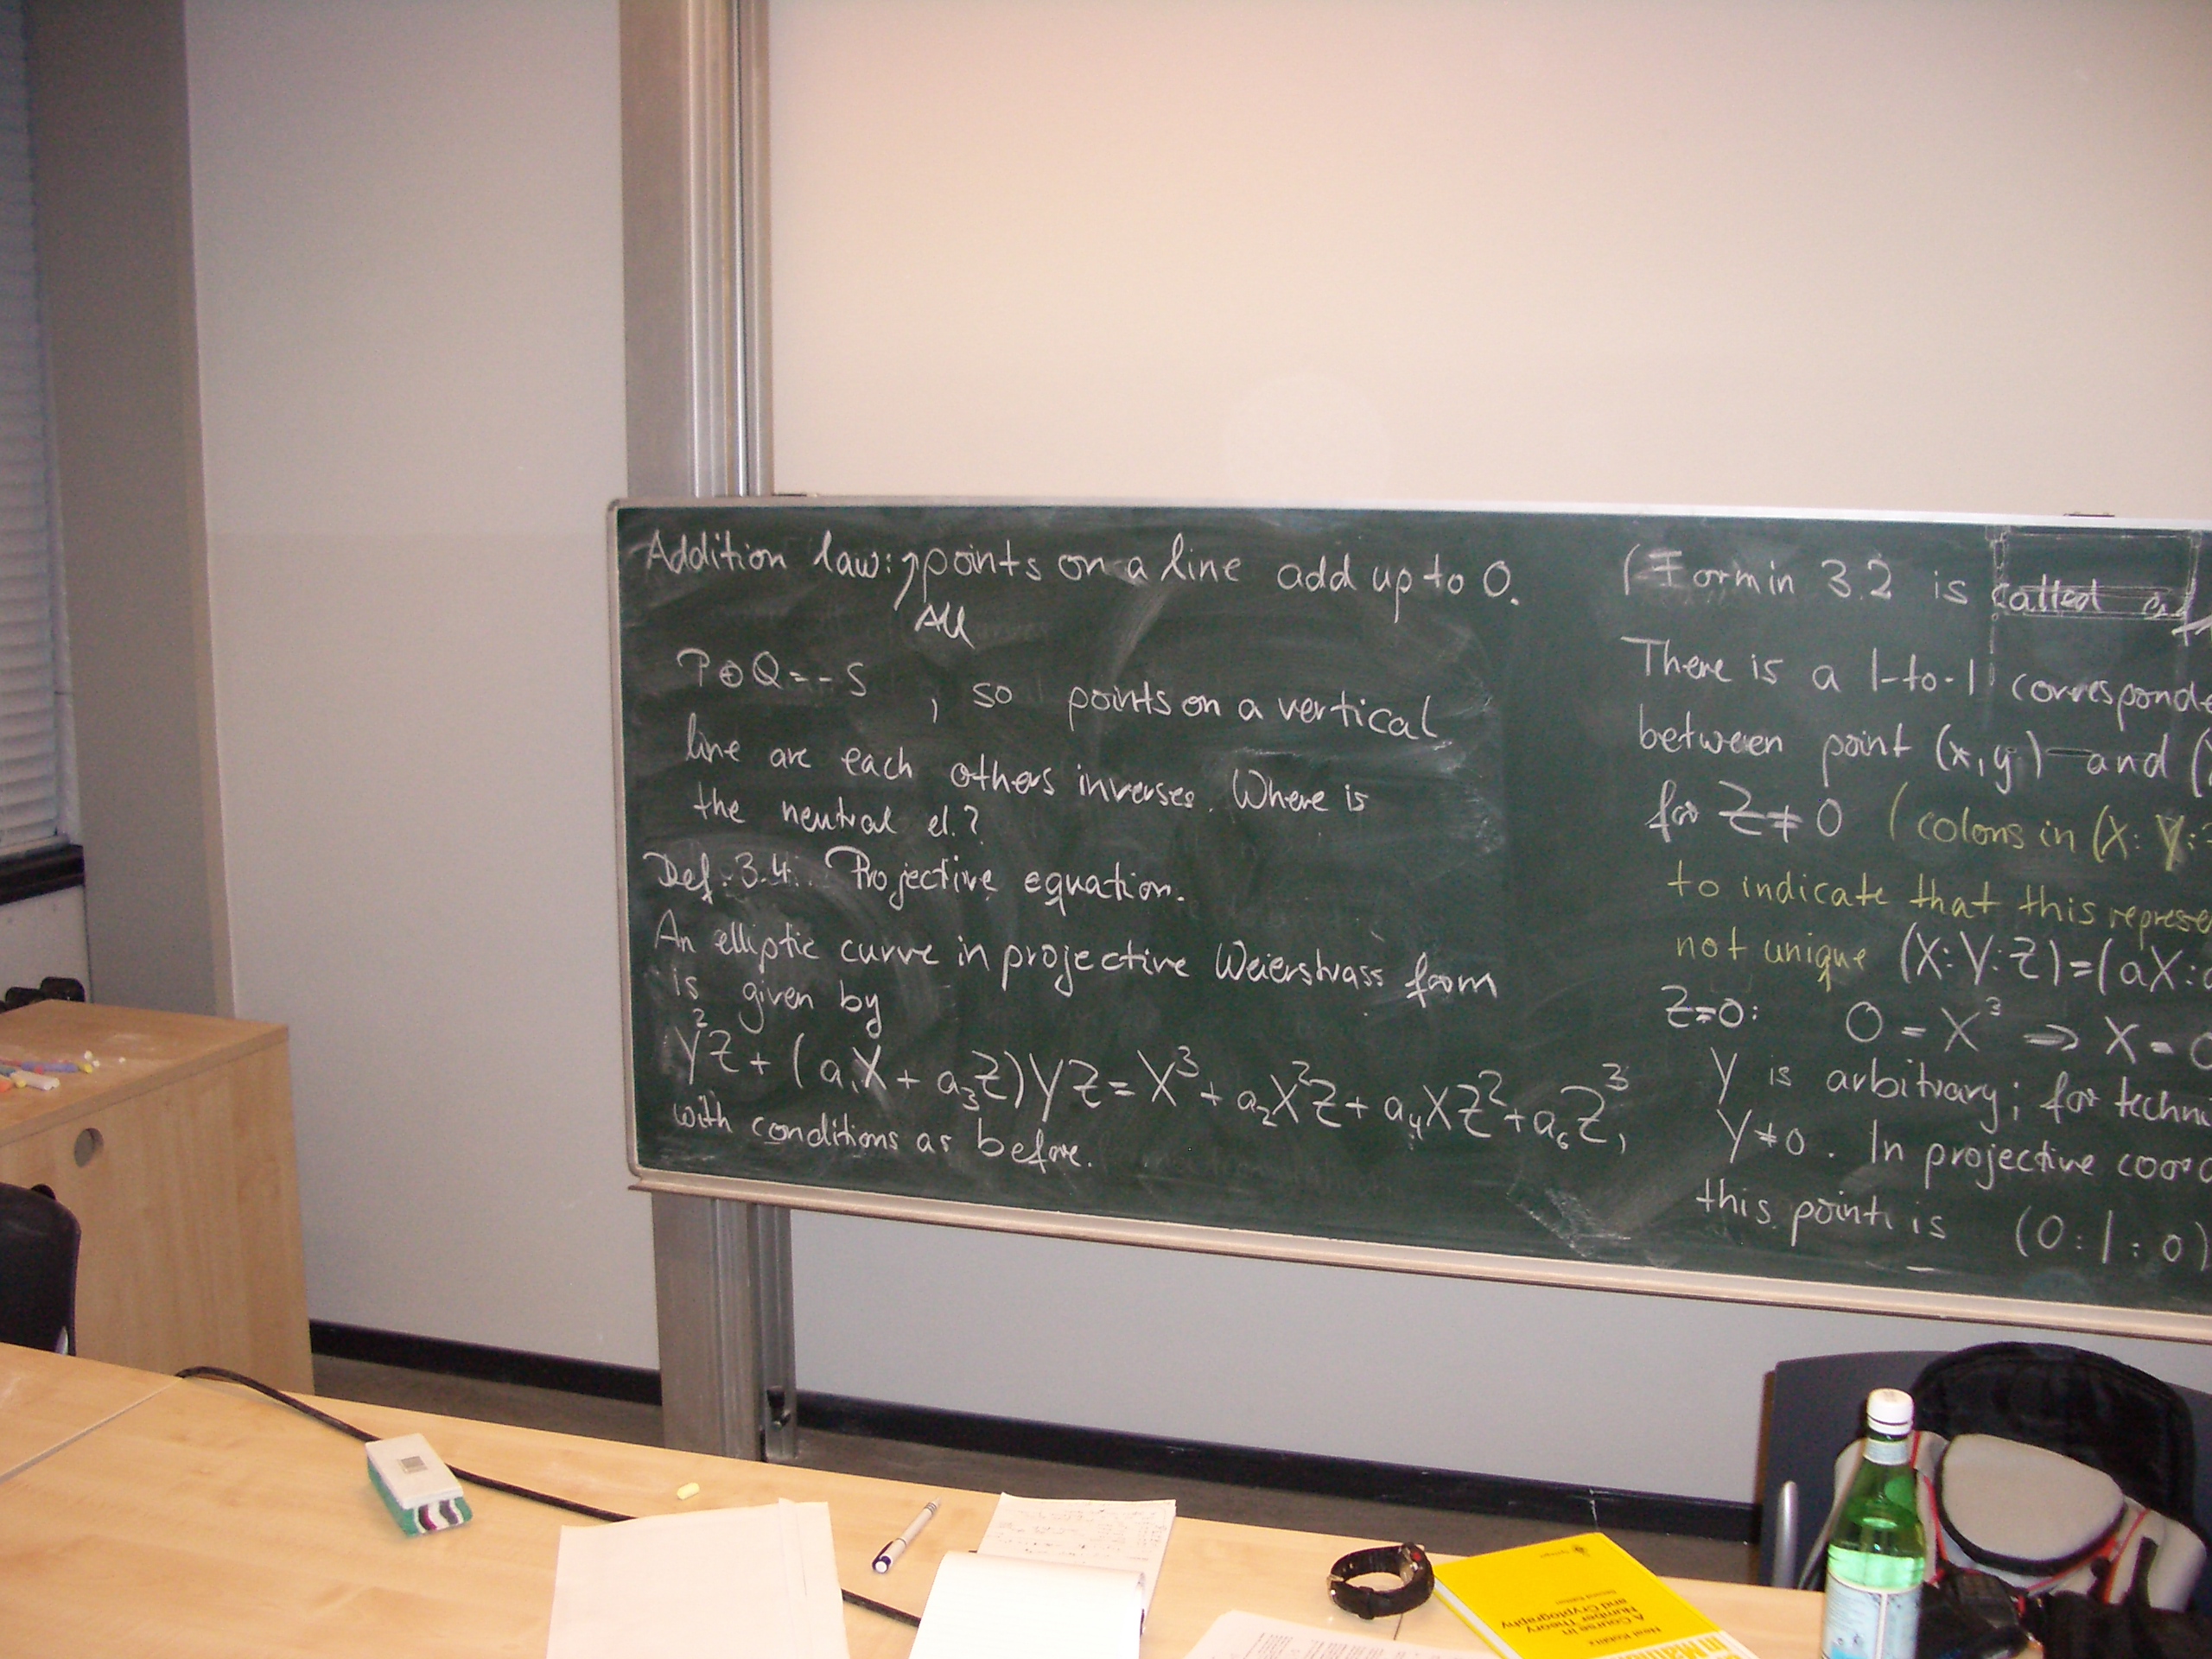 Addition law: points on a line add up to 0.
All
P⊕Q=-S, so points on a vertical
line are each others inverses. Where is
the neutral el.?
Def. 3.4. Projective equation.
An elliptic curve in projective Weierstrass form
is given by
Y²Z + (a₁X + a₃Z)YZ = X³ + a₂X²Z + a₄XZ² + a₆Z³,
with conditions as before.
(Form in 3.2 is called
There is a 1-to-1 corresponde
between point (x,y) and (
for Z≠0 (colons in (X:Y:
to indicate that this represe
not unique (X:Y:Z)=(aX:
Z=0: 0 = X³ ⇒ X = 0
Y is arbitrary; for techn
Y≠0. In projective coord
this point is (0:1:0)
Neal Koblitz
A Course in
Number Theory
and Cryptography
Second Edition
Springer